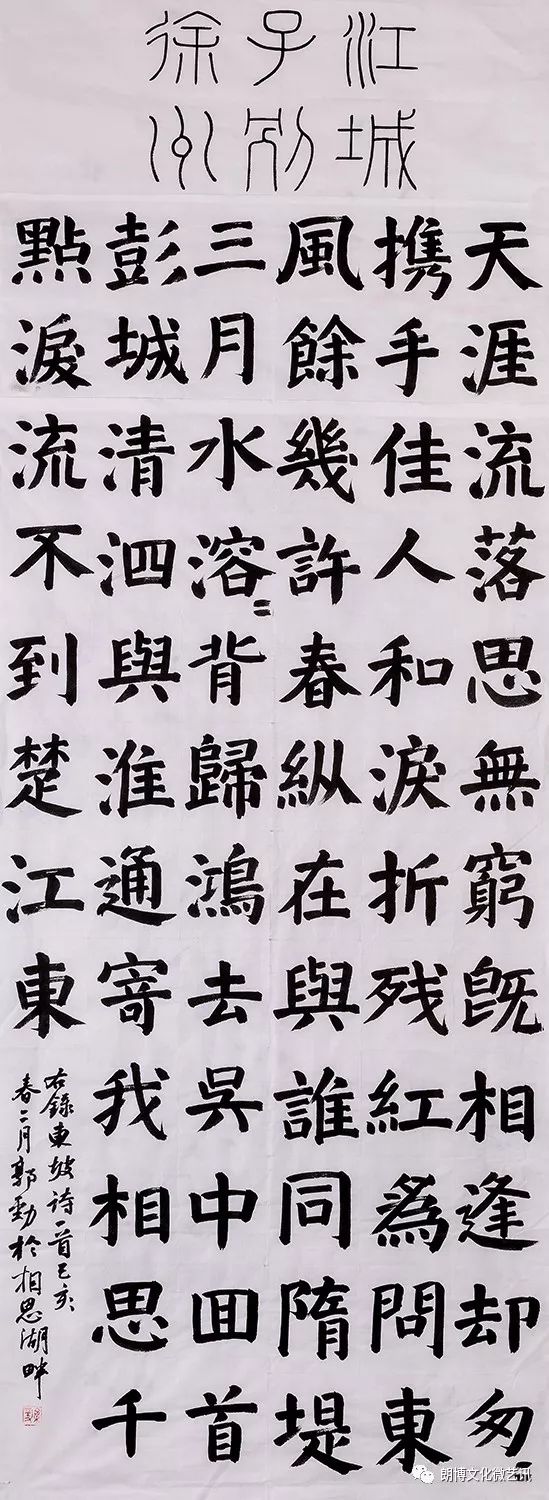 江城
子别
徐州
天涯流落思無窮既相逢却匆〻
携手佳人和淚折残紅為問東
風餘幾許春縱在與誰同隋堤
三月水溶〻背歸鴻去吳中囬首
彭城清泗與淮通寄我相思千
點淚流不到楚江東
右錄東坡诗一首己亥
春二月郭勁於相思湖畔
朗博文化微艺讯